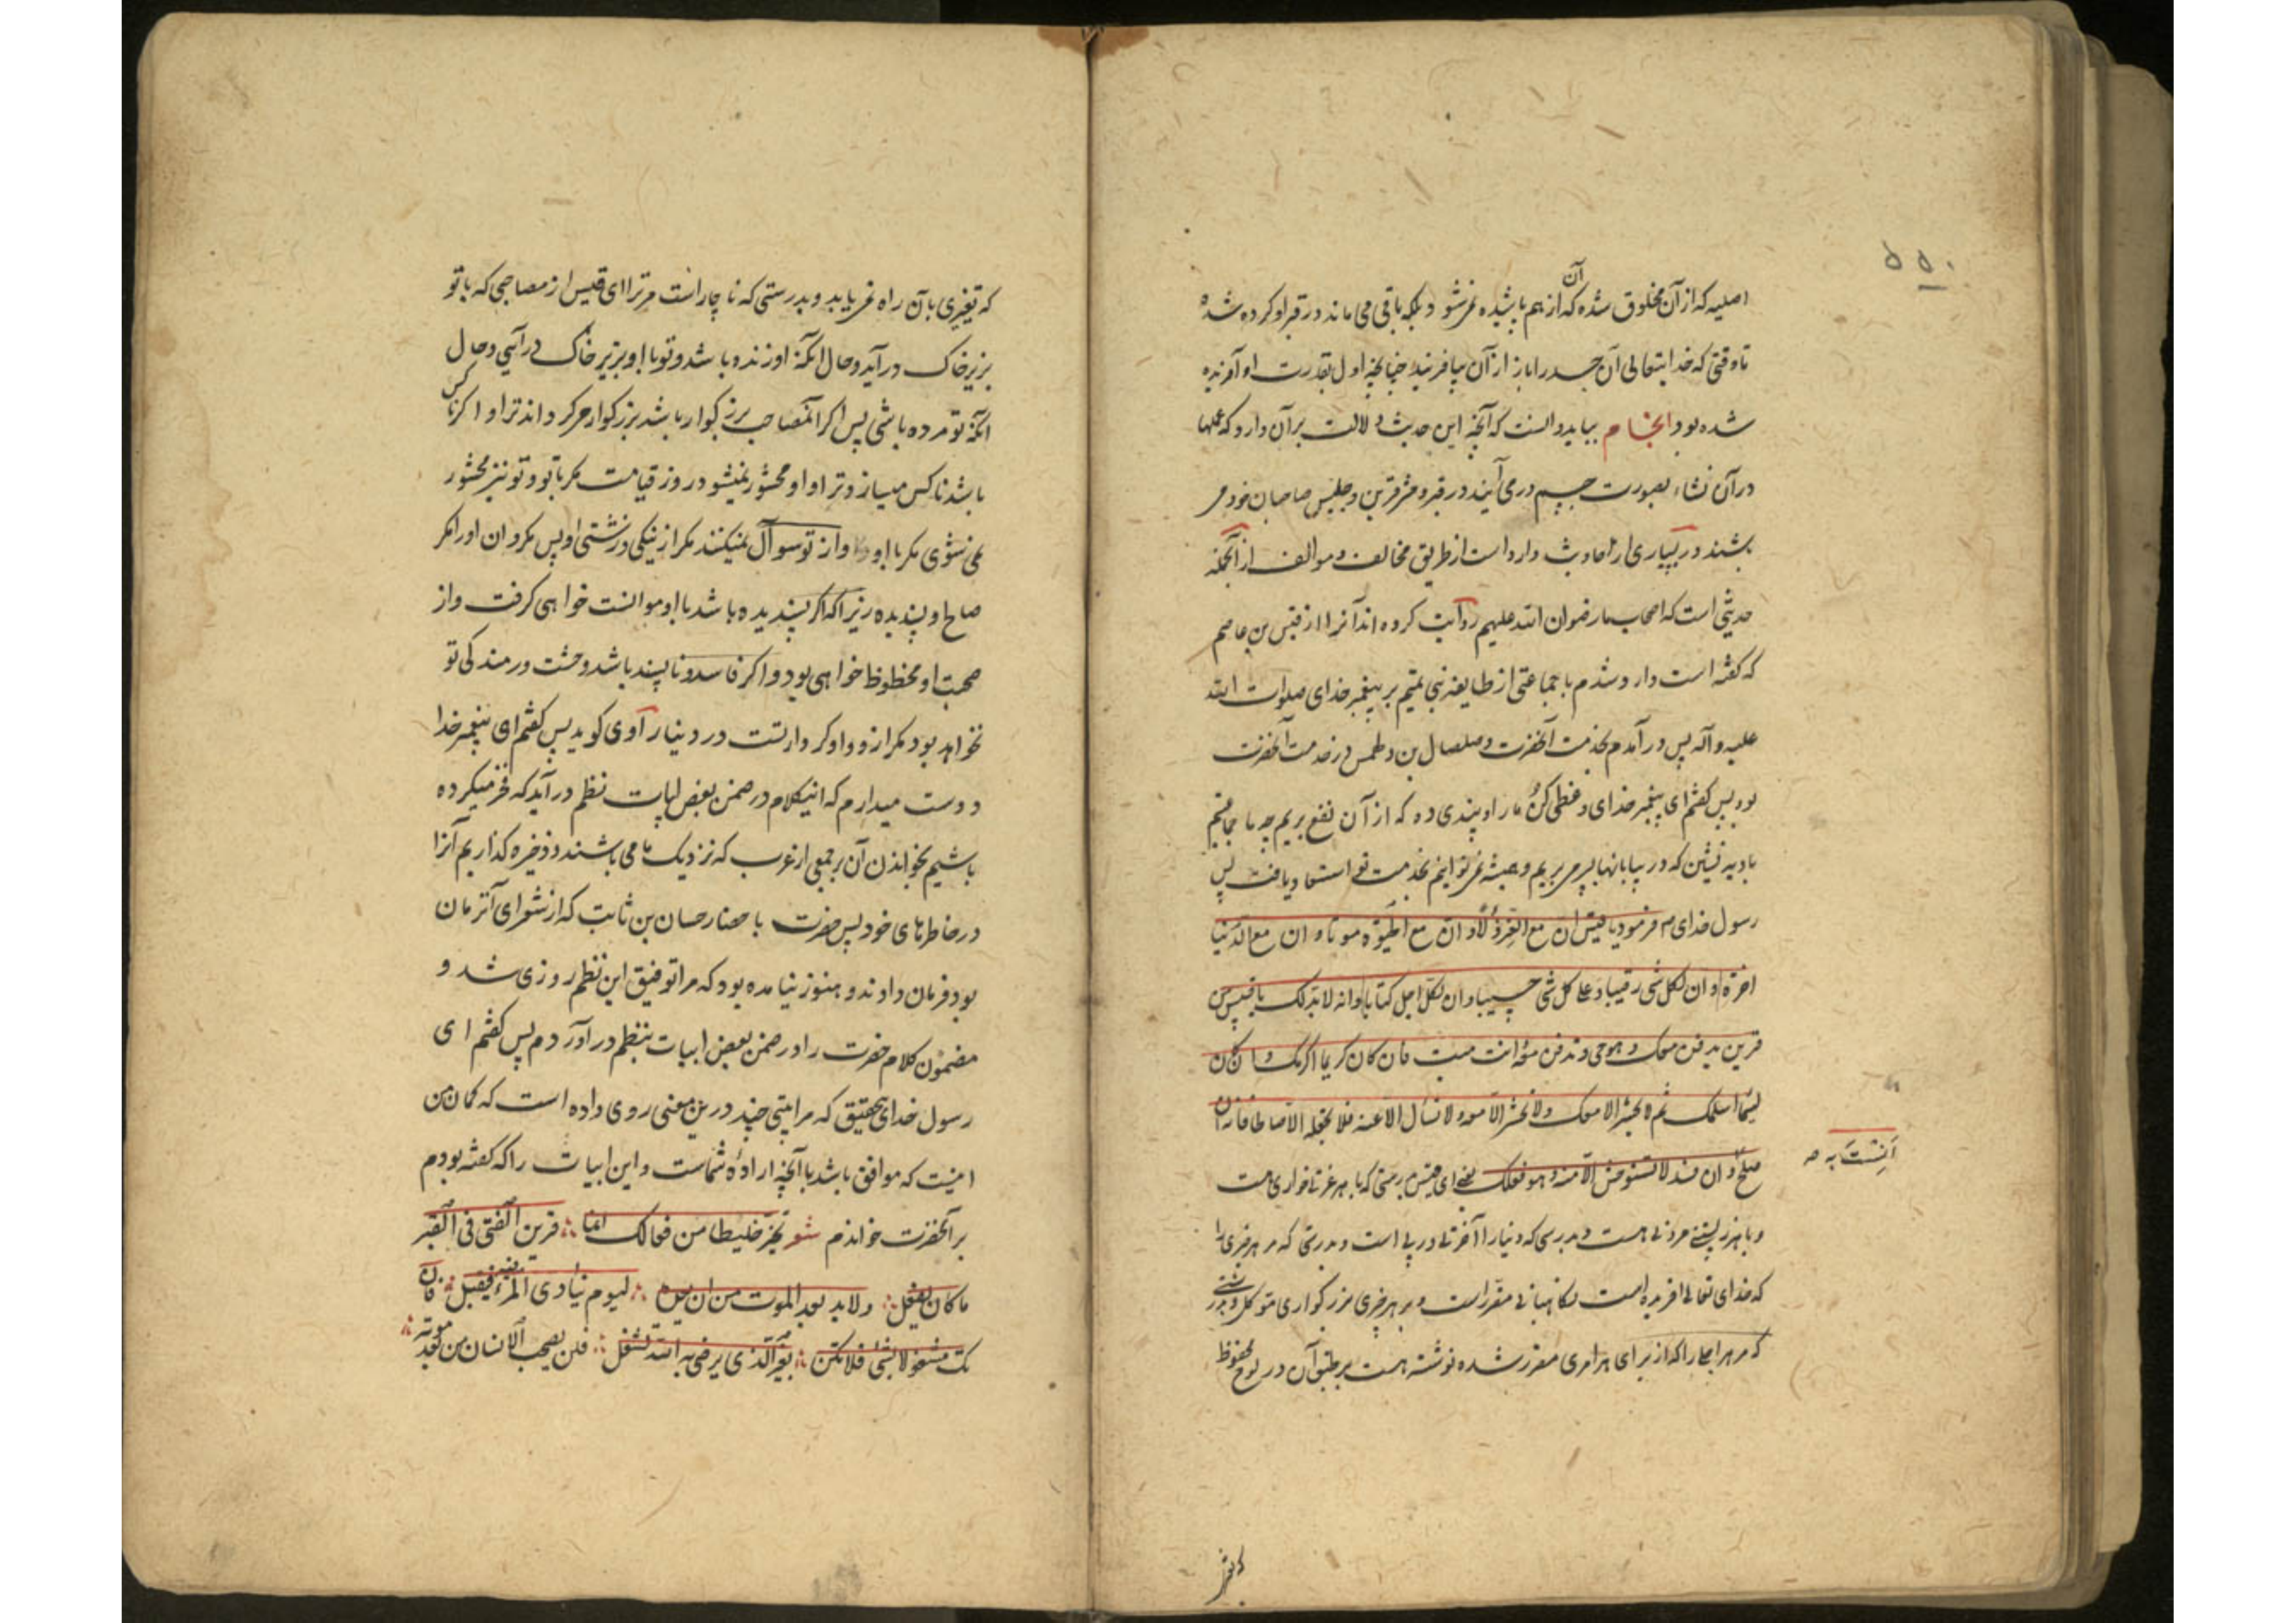 ۵۵۰
اصلیه که از آن مخلوق شده که آن از هم پاشیده نمی‌شود بلکه باقی می‌ماند در قبر او کرده شده
تا وقتی که خدایتعالی آن جسد را باز از آن بیافریند چنانچه اول بقدرت او آفریده
شده بود انجام بباید دانست که آنچه این حدیث دلالت بر آن دارد که عملها
در آن نشاء بصورت جسم در می‌آیند در قبر و حشر قرین و جلیس صاحبان خود می
باشند در بسیاری از احادیث وارد است از طریق مخالف و موالف از آنجمله
حدیثی است که اصحاب ما رضوان الله علیهم روایت کرده‌اند آنرا از قیس بن عاصم
که گفته است وارد شدم با جماعتی از طایفه بنی تمیم بر پیغمبر خدای صلوات الله
علیه و آله پس در آمدم بخدمت آنحضرت و صلصال بن دلهمس در خدمت آنحضرت
بود پس گفتم ای پیغمبر خدای وعظی کن ما را و پندی ده که از آن نفع بریم چه ما جماعتیم
بادیه نشین که در بیابانها بسر می‌بریم و همیشه نمی‌توانیم بخدمت تو استسعاد یافت پس
رسول خدای ص فرمود یا قیس ان مع العز ذلا و ان مع الحیوة موتا و ان مع الدنیا
اخرة و ان لکل شی رقیبا و علی کل شی حسیبا و ان لکل اجل کتابا و انه لا بد لک یا قیس من
قرین یدفن معک و هو حی و تدفن معه و انت میت فان کان کریما اکرمک و ان کان
لئیما اسلمک ثم لا یحشر الا معک و لا تحشر الا معه و لا تسأل الا عنه فلا تجعله الا صالحا فانه ان
صلح و ان فسد لا تستوحش الا منه و هو فعلک یعنی ای قیس بدرستی که با هر عزتی خواری هست
اَنِسْتَ به صه
و با هر زیستنی مردنی هست و بدرستی که دنیا را آخرتی در پی است و بدرستی که مر هر چیزی را
که خدای تعالی آفریده است نگاهبانی مقرر است و بر هر چیزی بزرگواری موکل و بدرستی
که مر هر اجلی را که از برای هر امری مقرر شده نوشته هست بر طبق آن در لوح محفوظ
که تغیر
که تغیری بآن راه نمی‌یابد و بدرستی که ناچار است مر ترا ای قیس از مصاحبی که با تو
بزیر خاک در آید و حال آنکه او زنده باشد و تو با او بزیر خاک در آیی و حال
آنکه تو مرده باشی پس اگر آنمصاحب بزرگوار باشد بزرگوار می‌گرداند ترا و اگر ناکس
باشد ناکس میسازد ترا و او محشور نمیشود روز قیامت مگر با تو و تو نیز محشور
نمی‌شوی مگر با او و از تو سوآل نمیکنند مگر از نیکی و زشتی او پس مگردان او را مگر
صالح و پسندیده زیرا که اگر پسندیده باشد با او موانست خواهی گرفت و از
صحبت او محظوظ خواهی بود و اگر فاسد و ناپسند باشد وحشت و رمندگی تو
نخواهد بود مگر از و و او کردار تست در دنیا راوی گوید پس گفتم ای پیغمبر خدا
دوست میدارم که اینکلام در ضمن بعض ابیات نظم در آید که فخر میکرده
باشیم بخواندن آن بر جمعی از عرب که نزدیک ما می‌باشند و ذخیره گذاریم آنرا
در خاطرهای خود پس حضرت باحضار حسان بن ثابت که از شعرای آنزمان
بود فرمان دادند و هنوز نیامده بود که مرا توفیق این نظم روزی شد و
مضمون کلام حضرت را در ضمن بعض ابیات بنظم در آوردم پس گفتم ای
رسول خدای بتحقیق که مرا بیتی چند درین معنی روی داده است که گمان من
اینست که موافق باشد با آنچه اراده شماست و این ابیات را که گفته بودم
بر آنحضرت خواندم شعر تخیر خلیطا من فعالک انما ∴ قرین الفتی فی القبر
ما کان یفعل ∴ و لا بد بعد الموت من ان تعده ∴ لیوم ینادی المرء فیه فیقبل ∴ فان
تک مشغولا بشئ فلا تکن ∴ بغیر الذی یرضی به الله تشغل ∴ فلن یصحب الانسان من بعد موته ∴